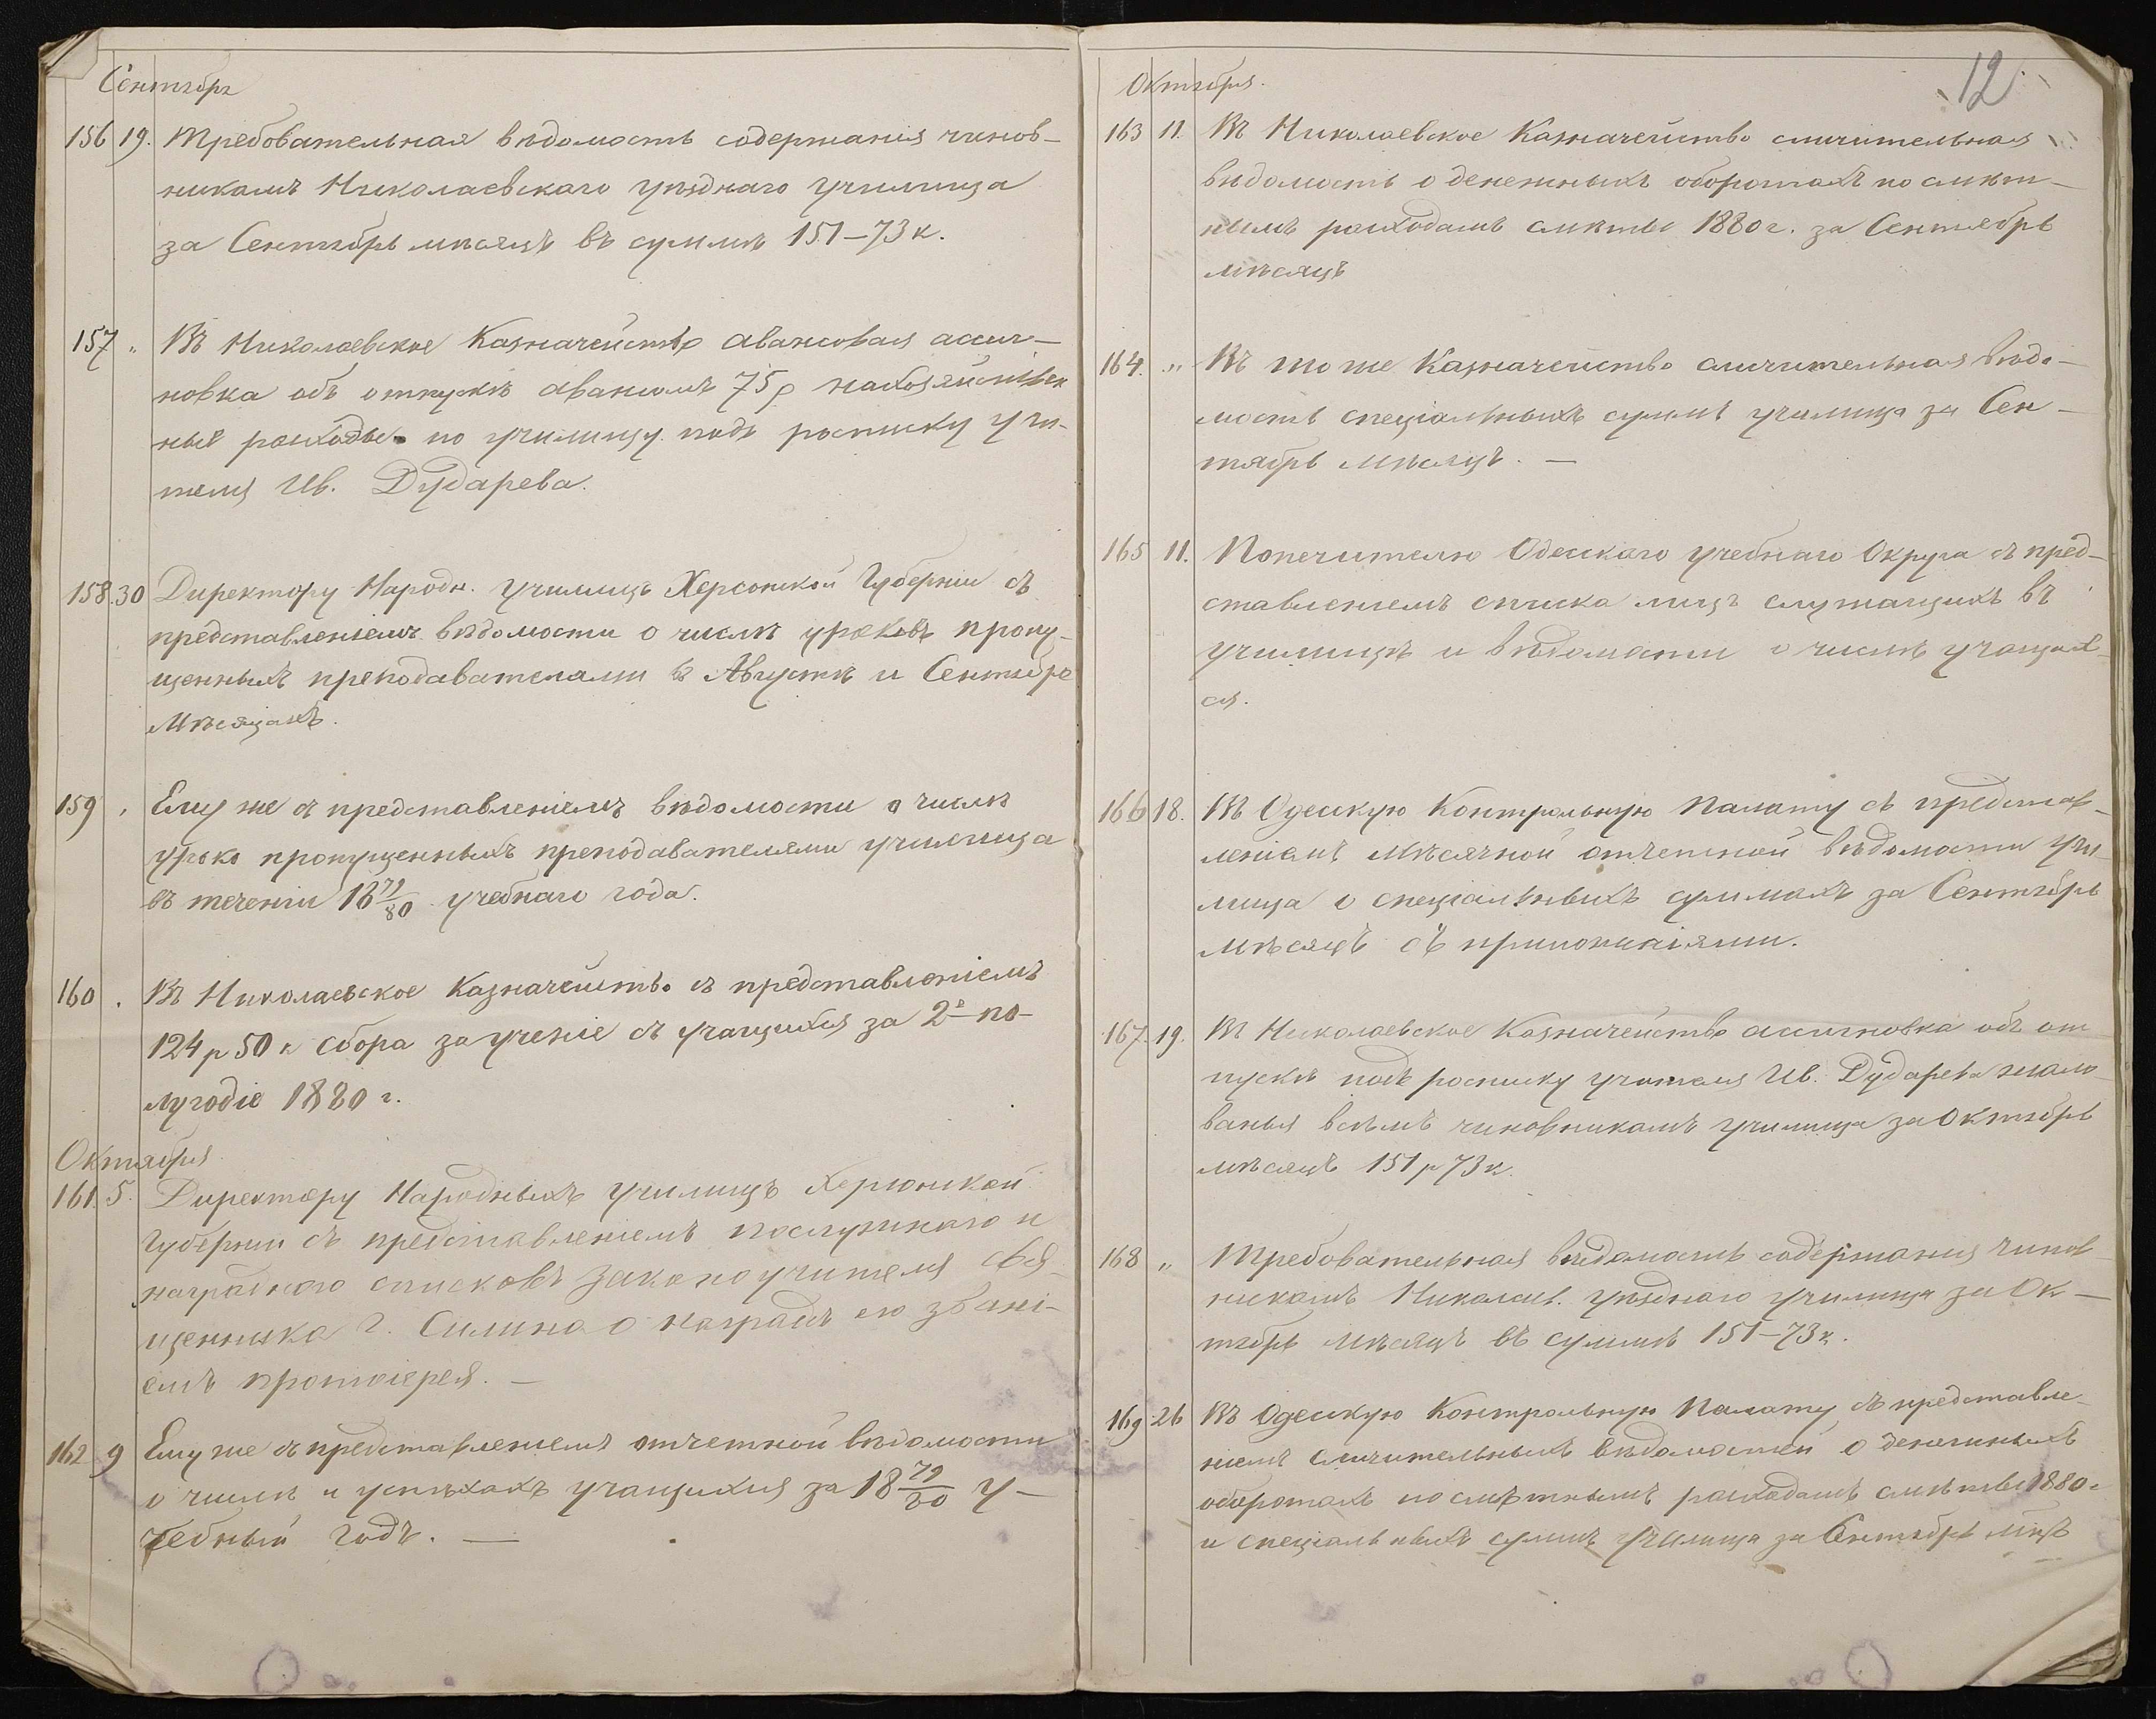 Сентябрь
156 19. Требовательная вѣдомость содержанія чинов-
никамъ Николаевскаго уѣзднаго училища
за Сентябрь мѣсяцъ въ суммѣ 151–73 к.
157 „ Въ Николаевское Казначейство авансовая ассиг-
новка объ отпускѣ авансомъ 75 р на хозяйствен
ные расходы по училищу подъ росписку учи-
теля Ив. Дударева.
158. 30 Директору Народн. училищъ Херсонской Губерніи съ
представленіемъ вѣдомости о числѣ уроковъ пропу-
щенныхъ преподавателями въ Августѣ и Сентябрѣ
мѣсяцахъ.
159 „ Ему же съ представленіемъ вѣдомости о числѣ
уроко пропущенныхъ преподавателями училища
въ теченіи 18 79/80 учебнаго года.
160 „ Въ Николаевское Казначейство съ представленіемъ
124 р 50 к сбора за ученіе съ учащихся за 2е по-
лугодіе 1880 г.
Октября
161. 5. Директору Народныхъ училищъ Херсонской
Губерніи съ представленіемъ послужнаго и
награднаго списковъ законоучителя свя-
щенника Г. Силина о наградѣ его звані-
емъ протоіерея. —
162 9 Ему же съ представленіемъ отчетной вѣдомости
о числѣ и успѣхахъ учащихся за 18 79/80 у-
чебный годъ. —
12
Октября.
163 11. Въ Николаевское Казначейство сличительная
вѣдомость о денежныхъ оборотахъ по смѣт-
нымъ расходамъ смѣты 1880 г. за Сентябрь
мѣсяцъ
164. „ Въ то же Казначейство сличительная вѣдо-
мость спеціальныхъ суммъ училища за Сен-
тябрь мѣсяцъ. —
165 11. Попечителю Одесскаго учебнаго Округа съ пред-
ставленіемъ списка лицъ служащихъ въ
училищѣ и вѣдомости о числѣ учащих-
ся.
166 18. Въ Одесскую Контрольную Палату съ представ-
леніемъ мѣсячной отчетной вѣдомости учи-
лища о спеціальныхъ суммахъ за Сентябрь
мѣсяцъ съ приложеніями.
167. 19. Въ Николаевское Казначейство ассигновка объ от
пускѣ подъ росписку учителя Ив. Дударева жало-
ванья всѣмъ чиновникамъ училища за Октябрь
мѣсяцъ 151 р 73 к.
168 „ Требовательная вѣдомость содержанія чинов-
никамъ Николаев. уѣзднаго училища за Ок-
тябрь мѣсяцъ въ суммѣ 151–73 к.
169 26 Въ Одесскую Контрольную Палату съ представле-
ніемъ сличительныхъ вѣдомостей о денежныхъ
оборотахъ по смѣтнымъ расходамъ смѣты 1880 г
и спеціальныхъ суммъ училища за Сентябрь мѣцъ